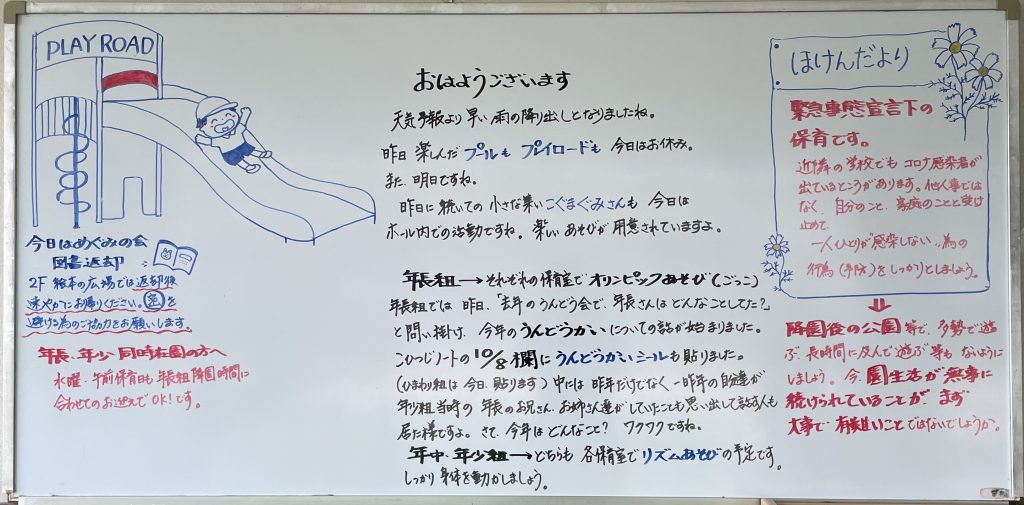 PLAY ROAD
今日はめぐみの会
図書返却
2F 絵本の広場では返却後
速やかにお帰りください。密を
避ける為のご協力をお願いします。
年長、年少 同時在園の方へ
水曜、午前保育日も年長組降園時間に
合わせてのお迎えでOK!です。
おはようございます
天気予報より早い雨の降り出しとなりましたね。
昨日楽しんだプールもプレイロードも今日はお休み。
また、明日ですね。
昨日に続いての小さな集いこぐまぐみさんも今日は
ホール内での活動ですね。楽しいあそびが用意されていますよ。
年長組→それぞれの保育室でオリンピックあそび(ごっこ)
年長組では昨日、「去年のうんどう会で、年長さんはどんなことしてた?」
と問い掛け、今年のうんどうかいについての話が始まりました。
こひつじノートの10/8欄にうんどうかいシールも貼りました。
(ひまわり組は今日、貼ります)中には昨年だけでなく一昨年の自分達が
年少組当時の年長のお兄さん、お姉さん達がしていたことも思い出して話す人も
居た様ですよ。さて、今年はどんなこと? ワクワクですね。
年中、年少組→どちらも各保育室でリズムあそびの予定です。
しっかり身体を動かしましょう。
ほけんだより
緊急事態宣言下の
保育です。
近隣の学校でもコロナ感染者が
出ているところがあります。他人事では
なく、自分のこと、家庭のことと受け
止めて、
一人ひとりが感染しない為の
行為(予防)をしっかりとしましょう。
降園後の公園等で、多勢で遊
ぶ、長時間に及んで遊ぶ等もないように
しましょう。今、園生活が無事に
続けられていることが、まず
大事で有難いことではないでしょうか。